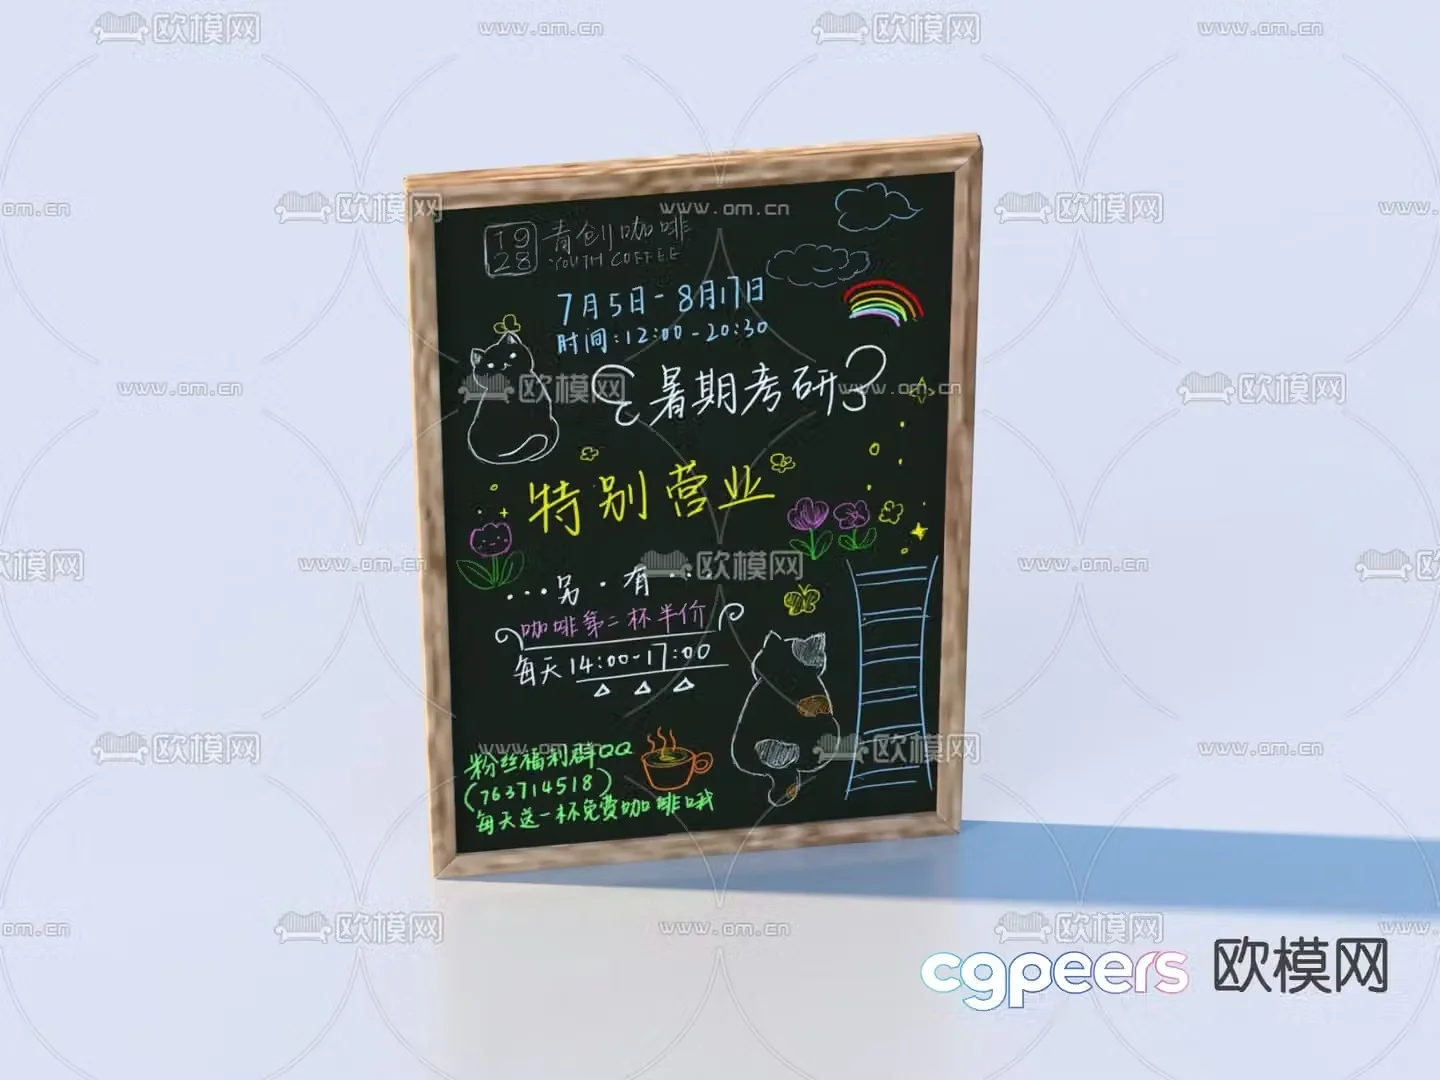 1928 青创咖啡
YOUTH COFFEE
7月5日-8月17日
时间:12:00-20:30
暑期考研
特别营业
...另·有...
咖啡第二杯半价
每天14:00-17:00
粉丝福利群QQ
(763714518)
每天送一杯免费咖啡哦
cgpeers 欧模网
欧模网
www.om.cn